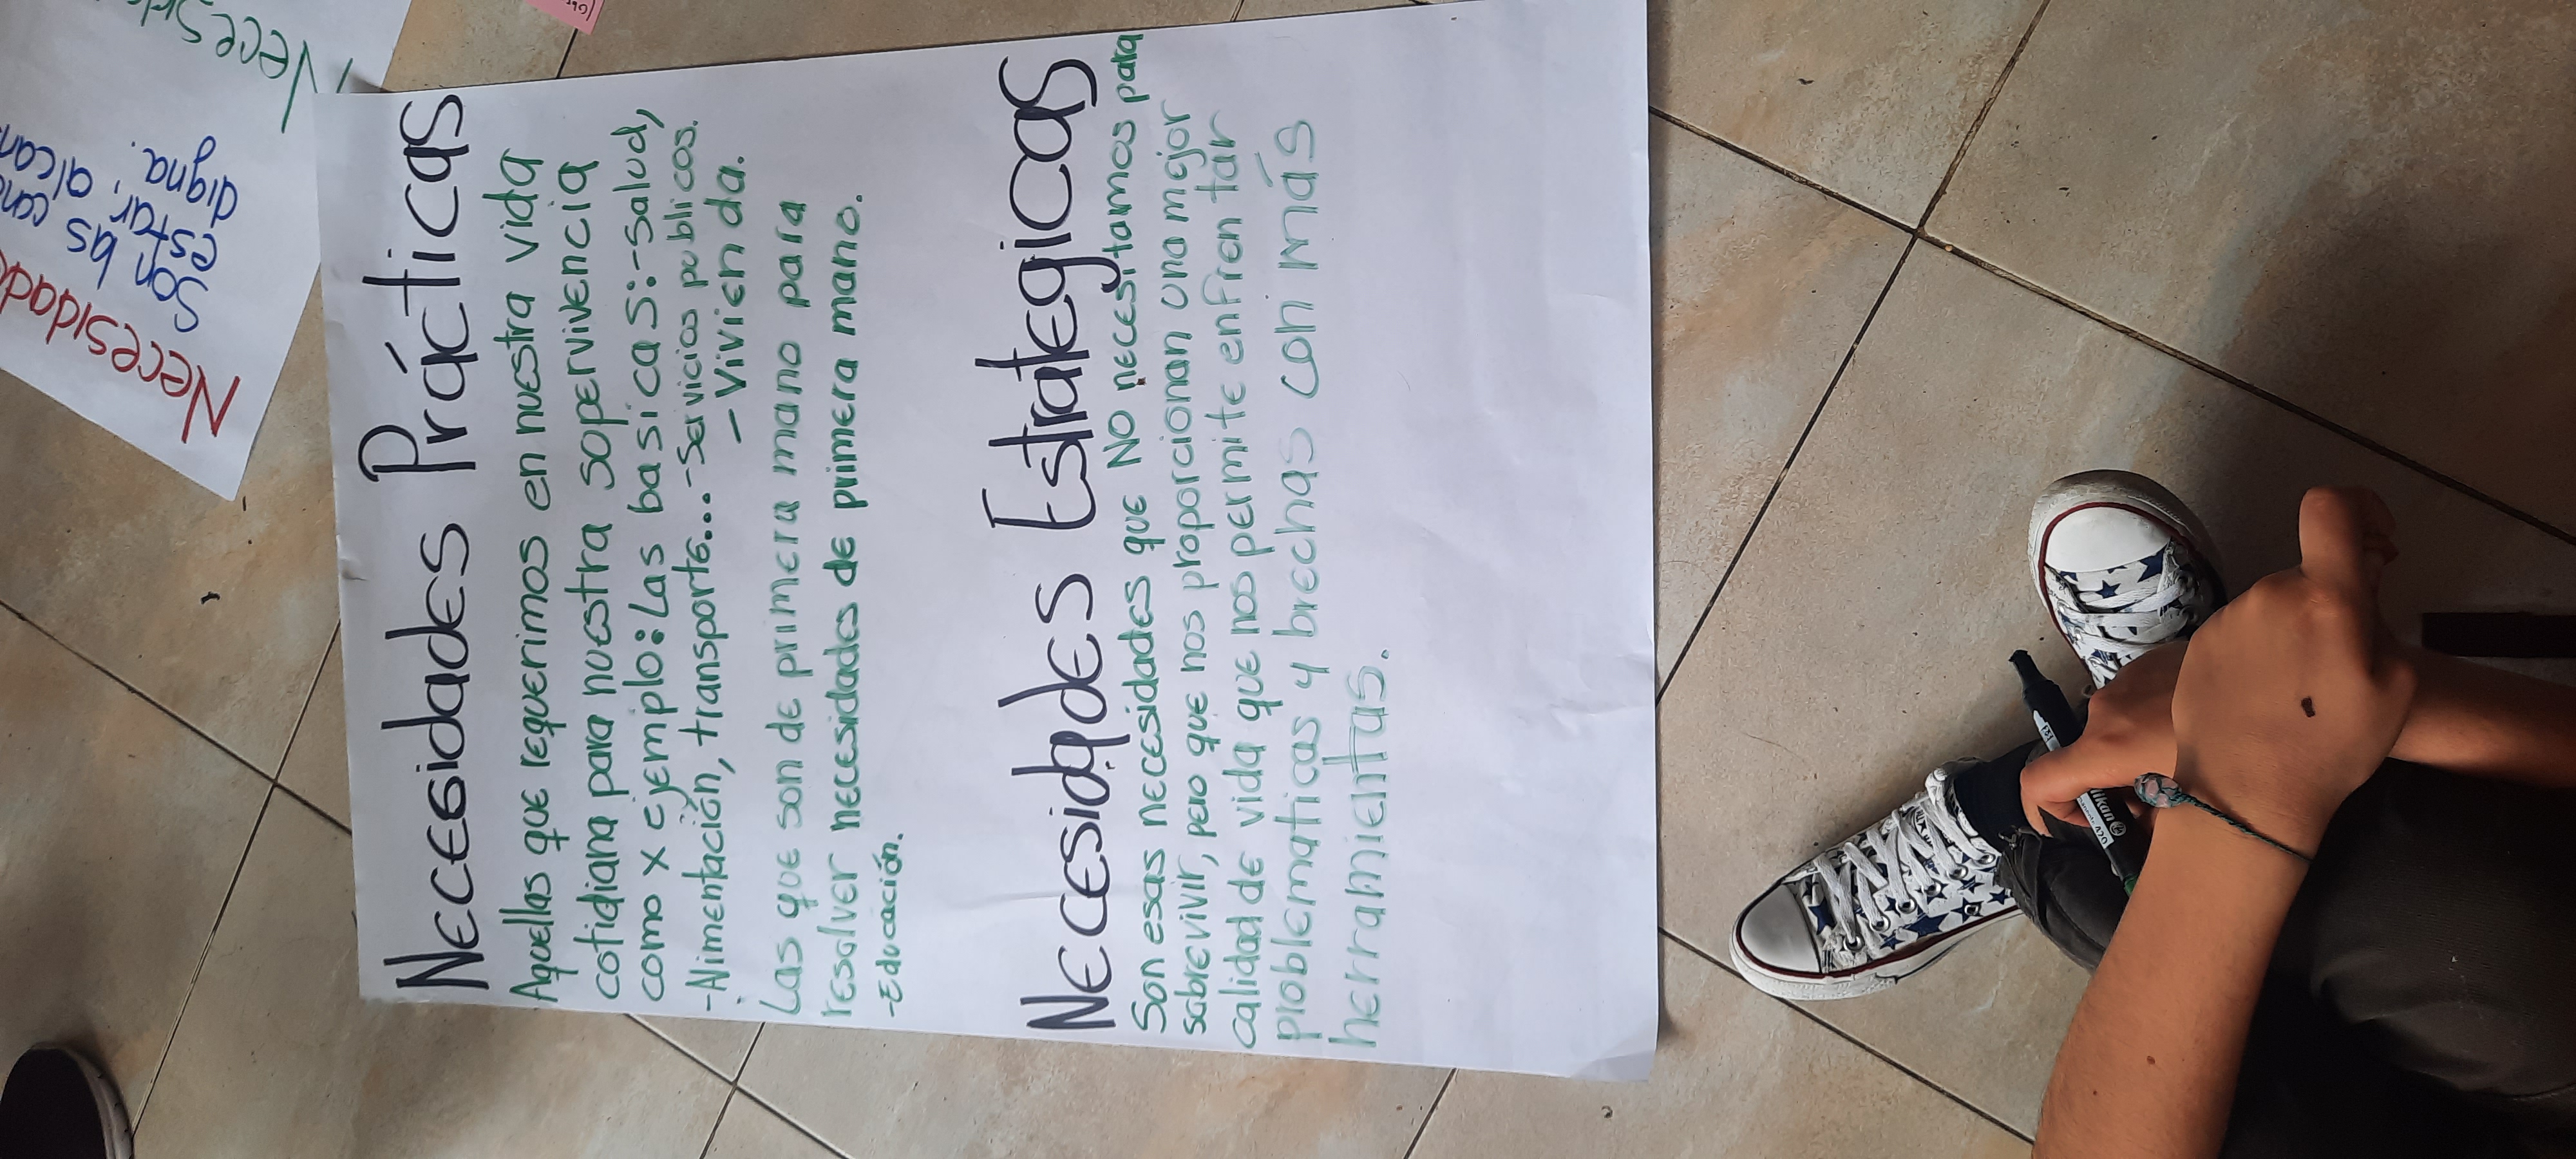 Necesidades Prácticas
Aquellas que requerimos en nuestra vida
cotidiana para nuestra supervivencia
como x ejemplo: Las basicas:-Salud,
-Alimentación, transporte...-Servicios publicos.
- Vivienda.
Las que son de primera mano para
resolver necesidades de primera mano.
-Educación.
Necesidades Estrategicas
Son esas necesidades que No necesitamos para
sobrevivir, pero que nos proporcionan una mejor
calidad de vida que nos permite enfrentar
problematicas y brechas con más
herramientas.
Son las
estar, alcan
digna.